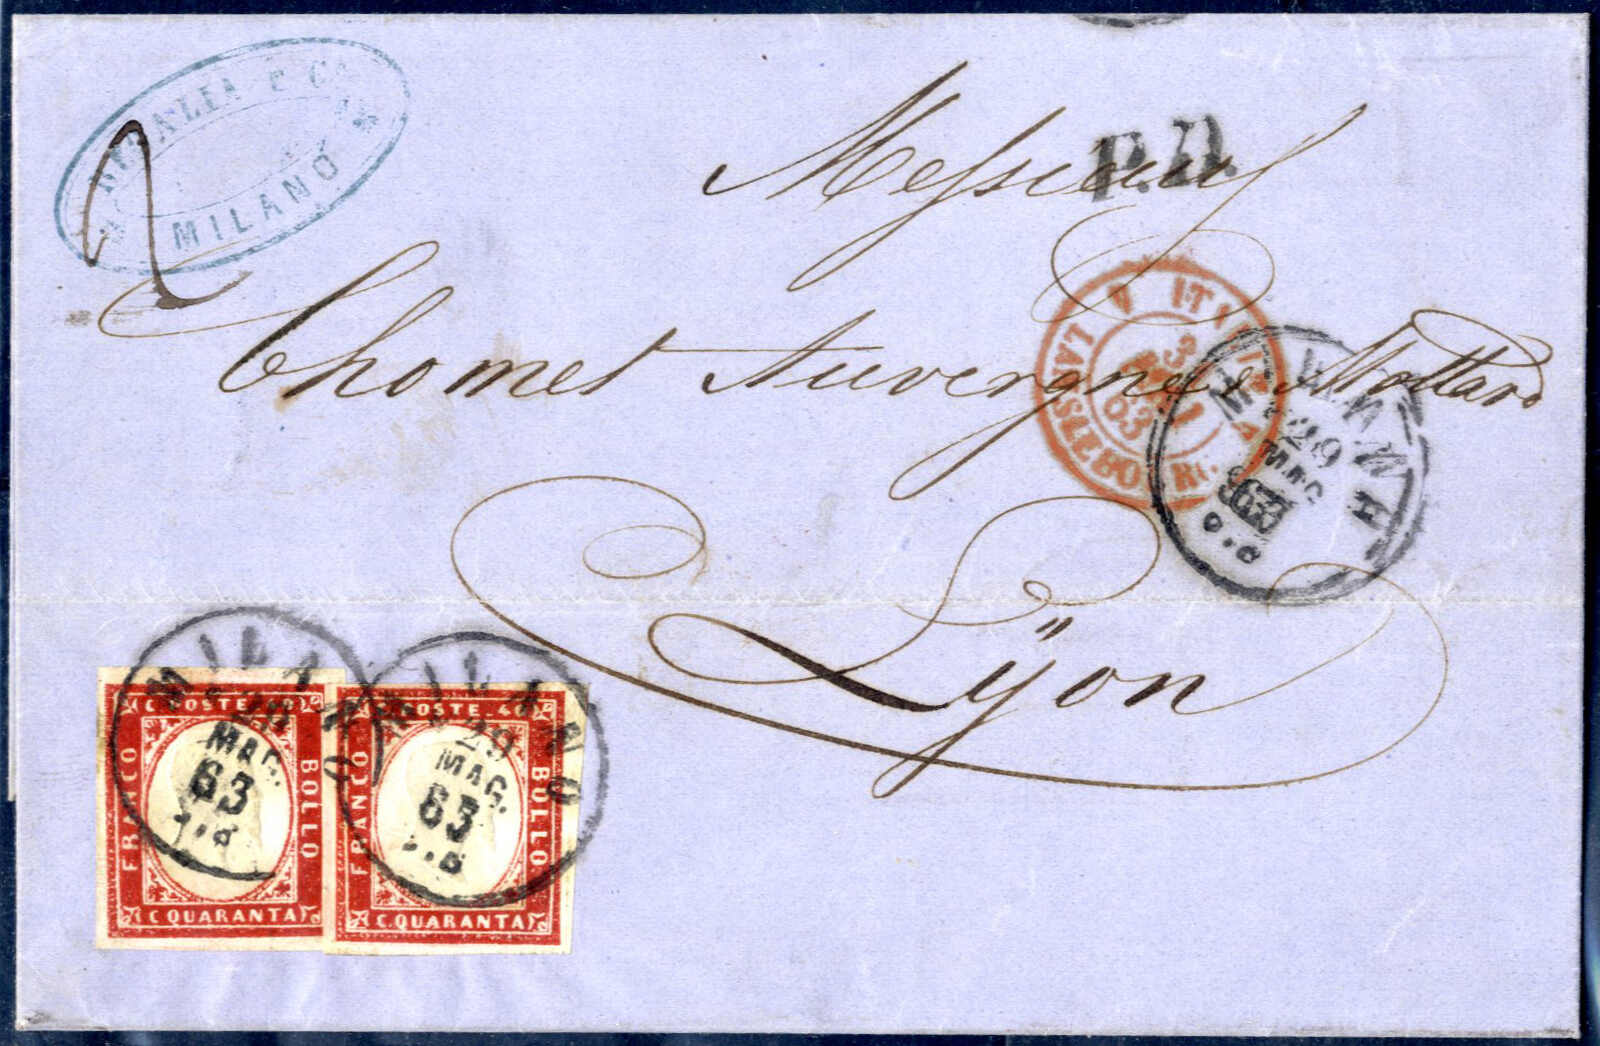 MILANO
2
P.D.
Messieurs
Chomet Auvergne & Mottard
ITALIE
LANSLEBOURG
63
MILANO
29
MAG.
63
Lÿon
MILANO
28
MAG.
63
C. POSTE. 40
FRANCO
BOLLO
C. QUARANTA
MILANO
29
MAG.
63
C. POSTE. 40
FRANCO
BOLLO
C. QUARANTA